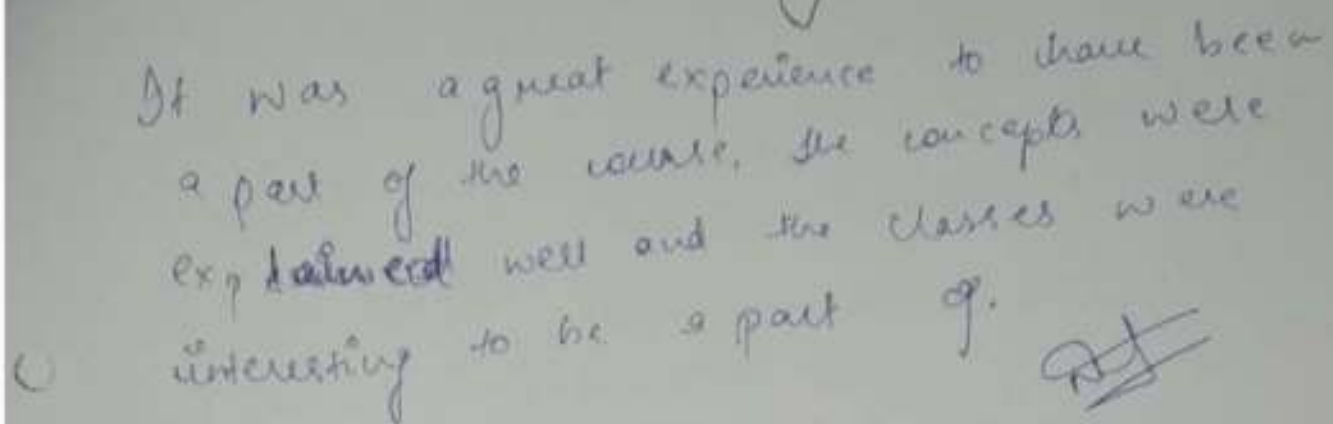 It was a great experience to have been
a part of the course, the concepts were
explained well and the classes were
interesting to be a part of.